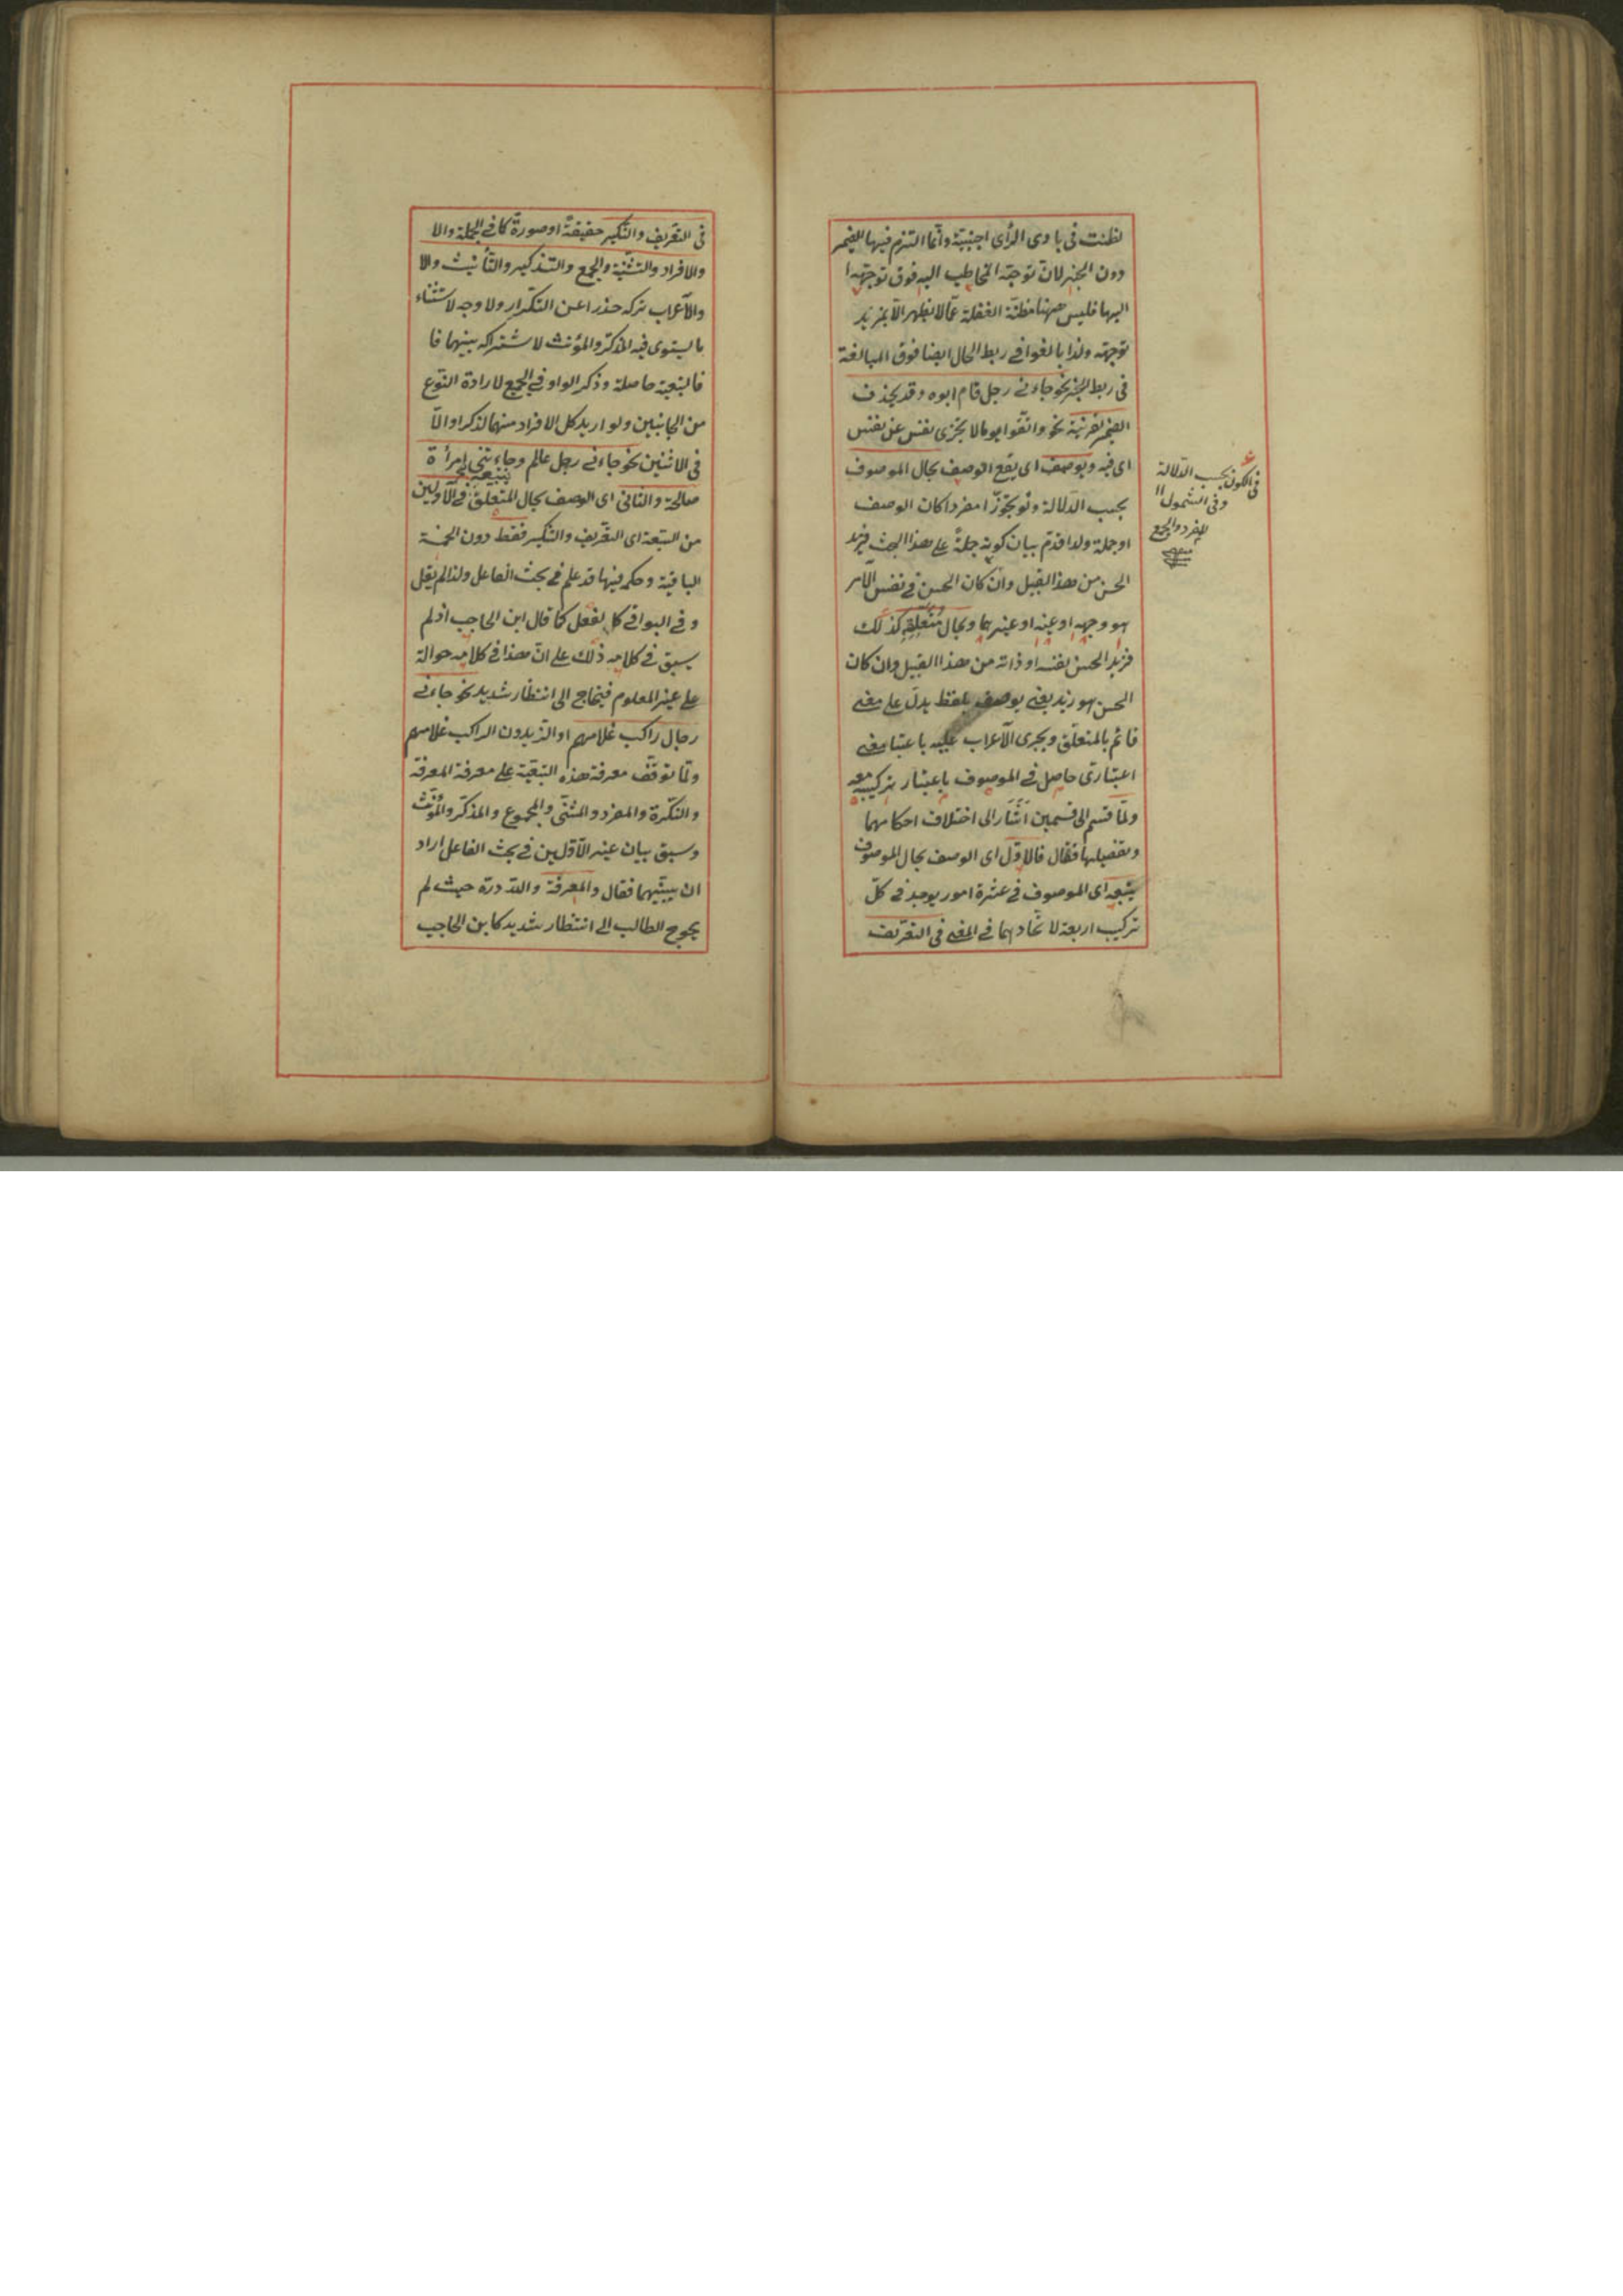 لظنت فى بادى الرأى اجنبيّة وانّما التزم فيها الضمير
دون الخبر لانّ توجّه المخاطب اليه فوق توجّهه
اليها فليس ههنا مظنّة الغفلة عمّا لا يظهر الاّ بمزيد
توجّه ولذا بالغوا فى ربط الحال ايضا فوق المبالغة
فى ربط الخبر نحو جاءنى رجل قام ابوه وقد يحذف
الضمير لقرينة نحو واتّقوا يوما لا تجزى نفس عن نفس
اى فيه ويوصف اى يقع الوصف بحال الموصوف
بحسب الدّلالة ولو تجوّزا مفردا كان الوصف
او جملة ولذا قدّم بيان كونه جملةً على هذا البحث فزيد
الحسن من هذا القبيل وان كان الحسن فى نفس الامر
هو وجهه او عينه او غيرهما وبحال متعلّقه كذلك
فزيد الحسن نفسه او ذاته من هذا القبيل وان كان
الحسن هو زيد يعنى يوصف بلفظ يدلّ على معنى
قائم بالمتعلّق ويجرى الاعراب عليه باعتبار معنى
اعتبارىّ حاصل فى الموصوف باعتبار تركيبه معه
ولمّا قسّم الى قسمين اشار الى اختلاف احكامهما
وتفصيلها فقال فالاوّل اى الوصف بحال الموصوف
يتبعه اى الموصوف فى عشرة امور يوجد فى كلّ
تركيب اربعة لاتّحادهما فى المعنى فى التعريف
فى الكون بحسب الدّلالة
وفى الشمول
للمفرد والجمع
منه
فى التعريف والتنكير حقيقةً او صورةً كما فى الجملة والا
والافراد والتثنية والجمع والتذكير والتأنيث والا
والاعراب تركه حذرا عن التكرار ولا وجه لاستثناء
ما يستوى فيه المذكر والمؤنث لاشتراكه بينهما فا
فالتبعية حاصلة وذكر الواو فى الجمع لارادة التوع
من الجانبين ولو اريد كل الافراد منهما لذكر او الّا
فى الاثنين نحو جاءنى رجل عالم وجاءتنى امرأة
صالحة والثانى اى الوصف بحال المتعلّق يتبعه فى الاوّلين
من التبعة اى التعريف والتنكير فقط دون الخمسة
الباقية وحكمه فيها قد علم فى بحث الفاعل ولذا لم يقل
وفى البواقى كالفعل كما قال ابن الحاجب اذ لم
يسبق فى كلامه ذلك على انّ هذا فى كلامه حوالة
على غير المعلوم فيحتاج الى انتظار شديد نحو جاءنى
رجال راكب غلامهم او الزيدون الراكب غلامهم
ولمّا توقّف معرفة هذه التبعيّة على معرفة المعرفة
والنكرة والمفرد والمثنّى والمجموع والمذكّر والمؤنّث
وسبق بيان غير الاوّلين فى بحث الفاعل اراد
ان يبيّنهما فقال والمعرفة ولله درّه حيث لم
يحوج الطالب الى انتظار شديد كابن الحاجب